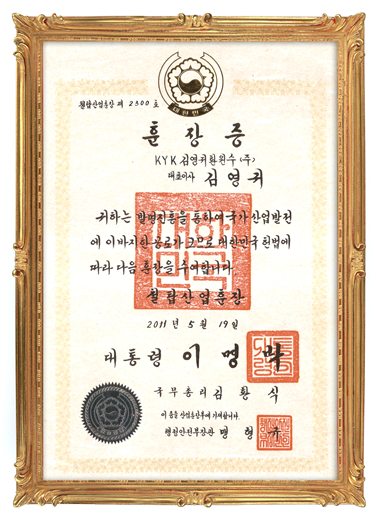 철탑산업훈장 제 2500 호
대한민국
훈장증
KYK김영귀환원수(주)
대표이사 김영귀
귀하는 발명진흥을 통하여 국가 산업발전
에 이바지한 공로가 크므로 대한민국 헌법에
따라 다음 훈장을 수여합니다.
철탑산업훈장
2011년 5월 19일
대통령 이명박
국무총리 김황식
이 증을 산업훈장부에 기재합니다.
행정안전부장관 맹형규